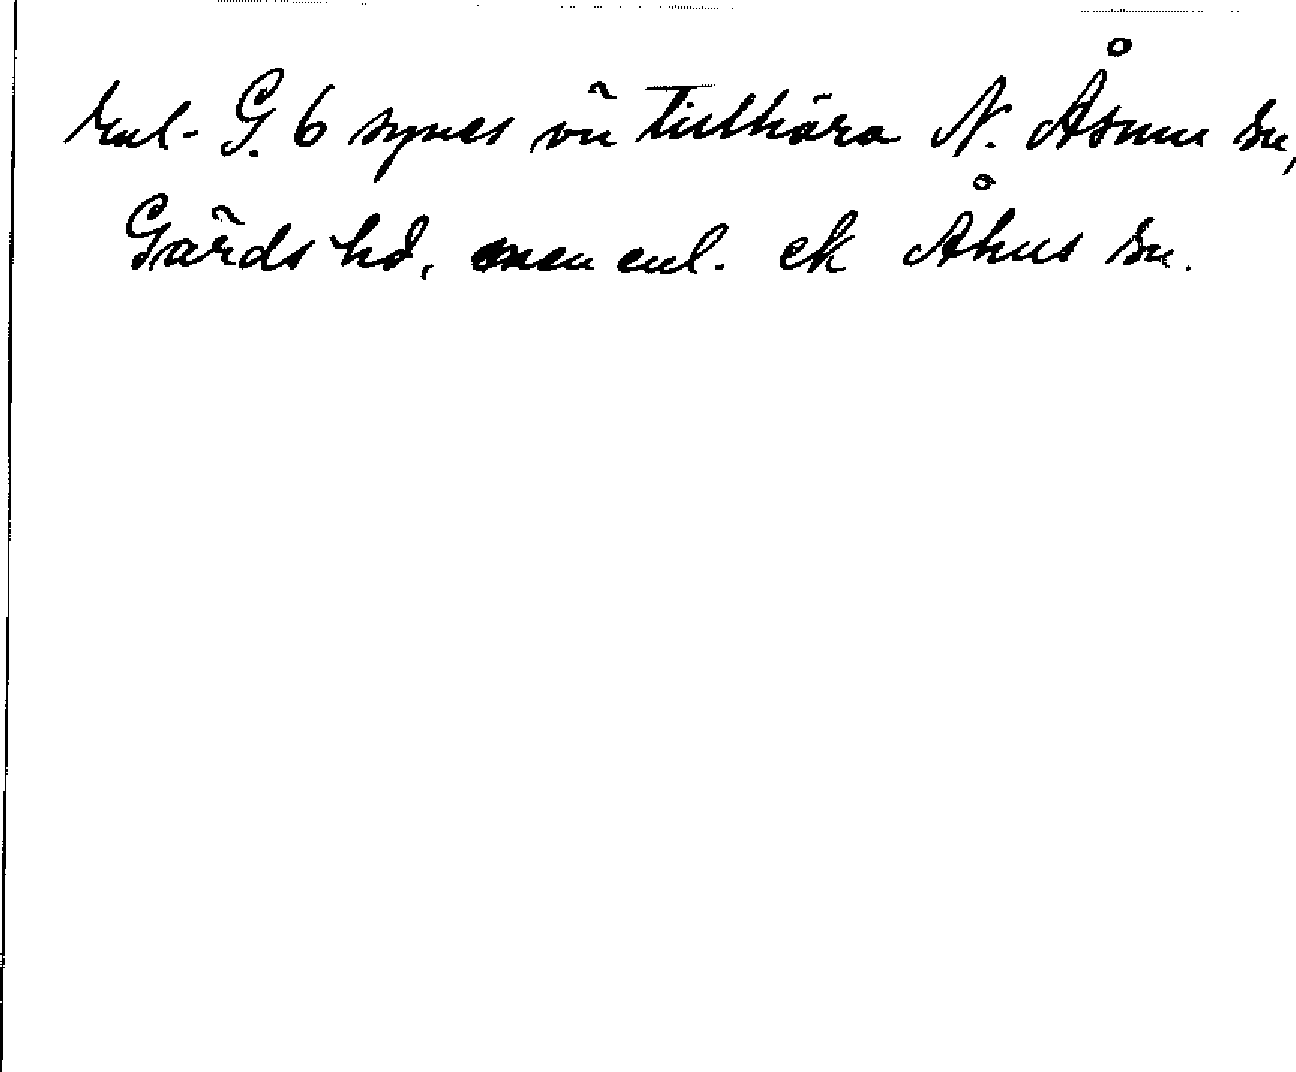 Enl. G. 6 synes vü tillhöra N. Åsum sn,
Gärds hd, men enl. ek Åhus sn.